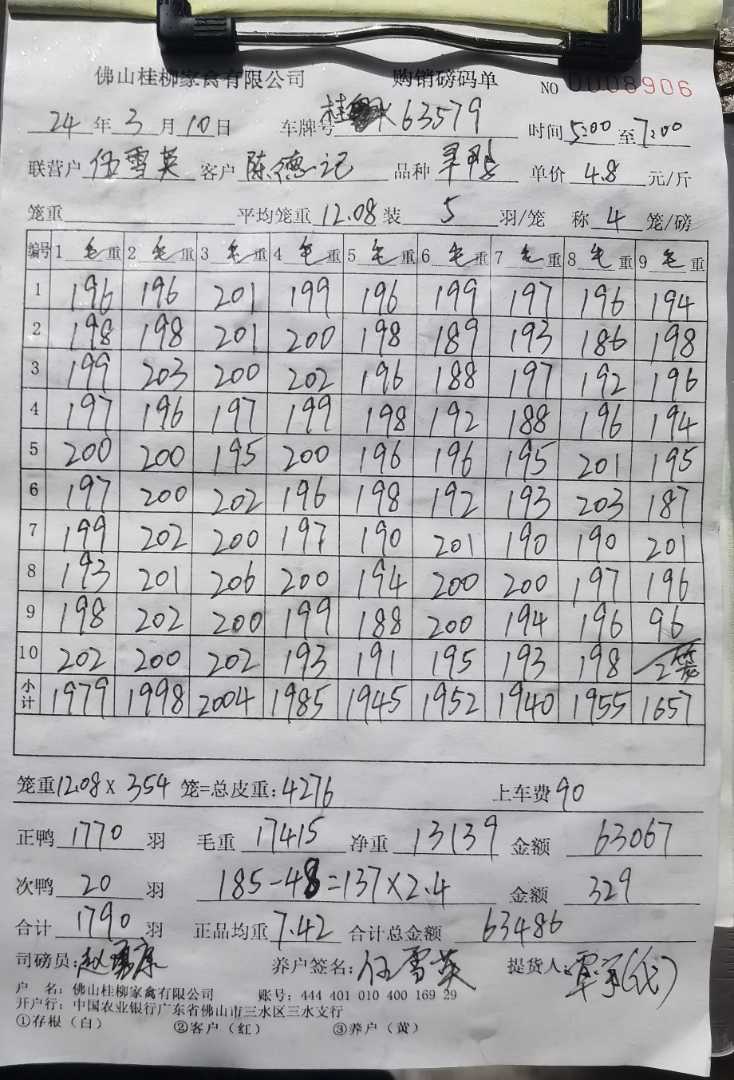 佛山桂柳家禽有限公司 购销磅码单 NO 0008906
24 年 3 月 10 日 车牌号 桂 K63579 时间 5:00 至 7:00
联营户 伍雪英 客户 陈德记 品种 羊鸭 单价 4.8 元/斤
笼重 平均笼重 12.08 装 5 羽/笼 称 4 笼/磅
编号 1 毛重 2 毛重 3 毛重 4 毛重 5 毛重 6 毛重 7 毛重 8 毛重 9 毛重
1 196 196 201 199 196 199 197 196 194
2 198 198 201 200 198 189 193 186 198
3 199 203 200 202 196 188 197 192 196
4 197 196 197 199 198 192 188 196 194
5 200 200 195 200 196 196 195 201 195
6 197 200 202 196 198 192 193 203 187
7 199 202 200 197 190 201 190 190 201
8 193 201 206 200 194 200 200 197 196
9 198 202 200 199 188 200 194 196 96
10 202 200 202 193 191 195 193 198 2笼
小计 1979 1998 2004 1985 1945 1952 1940 1955 1657
笼重 12.08 X 354 笼=总皮重: 4276 上车费 90
正鸭 1770 羽 毛重 17415 净重 13139 金额 63067
次鸭 20 羽 185-48=137×2.4 金额 329
合计 1790 羽 正品均重 7.42 合计总金额 63486
司磅员: 养户签名: 伍雪英 提货人:
户 名: 佛山桂柳家禽有限公司 账号: 444 401 010 400 169 29
开户行: 中国农业银行广东省佛山市三水区三水支行
①存根（白） ②客户（红） ③养户（黄）